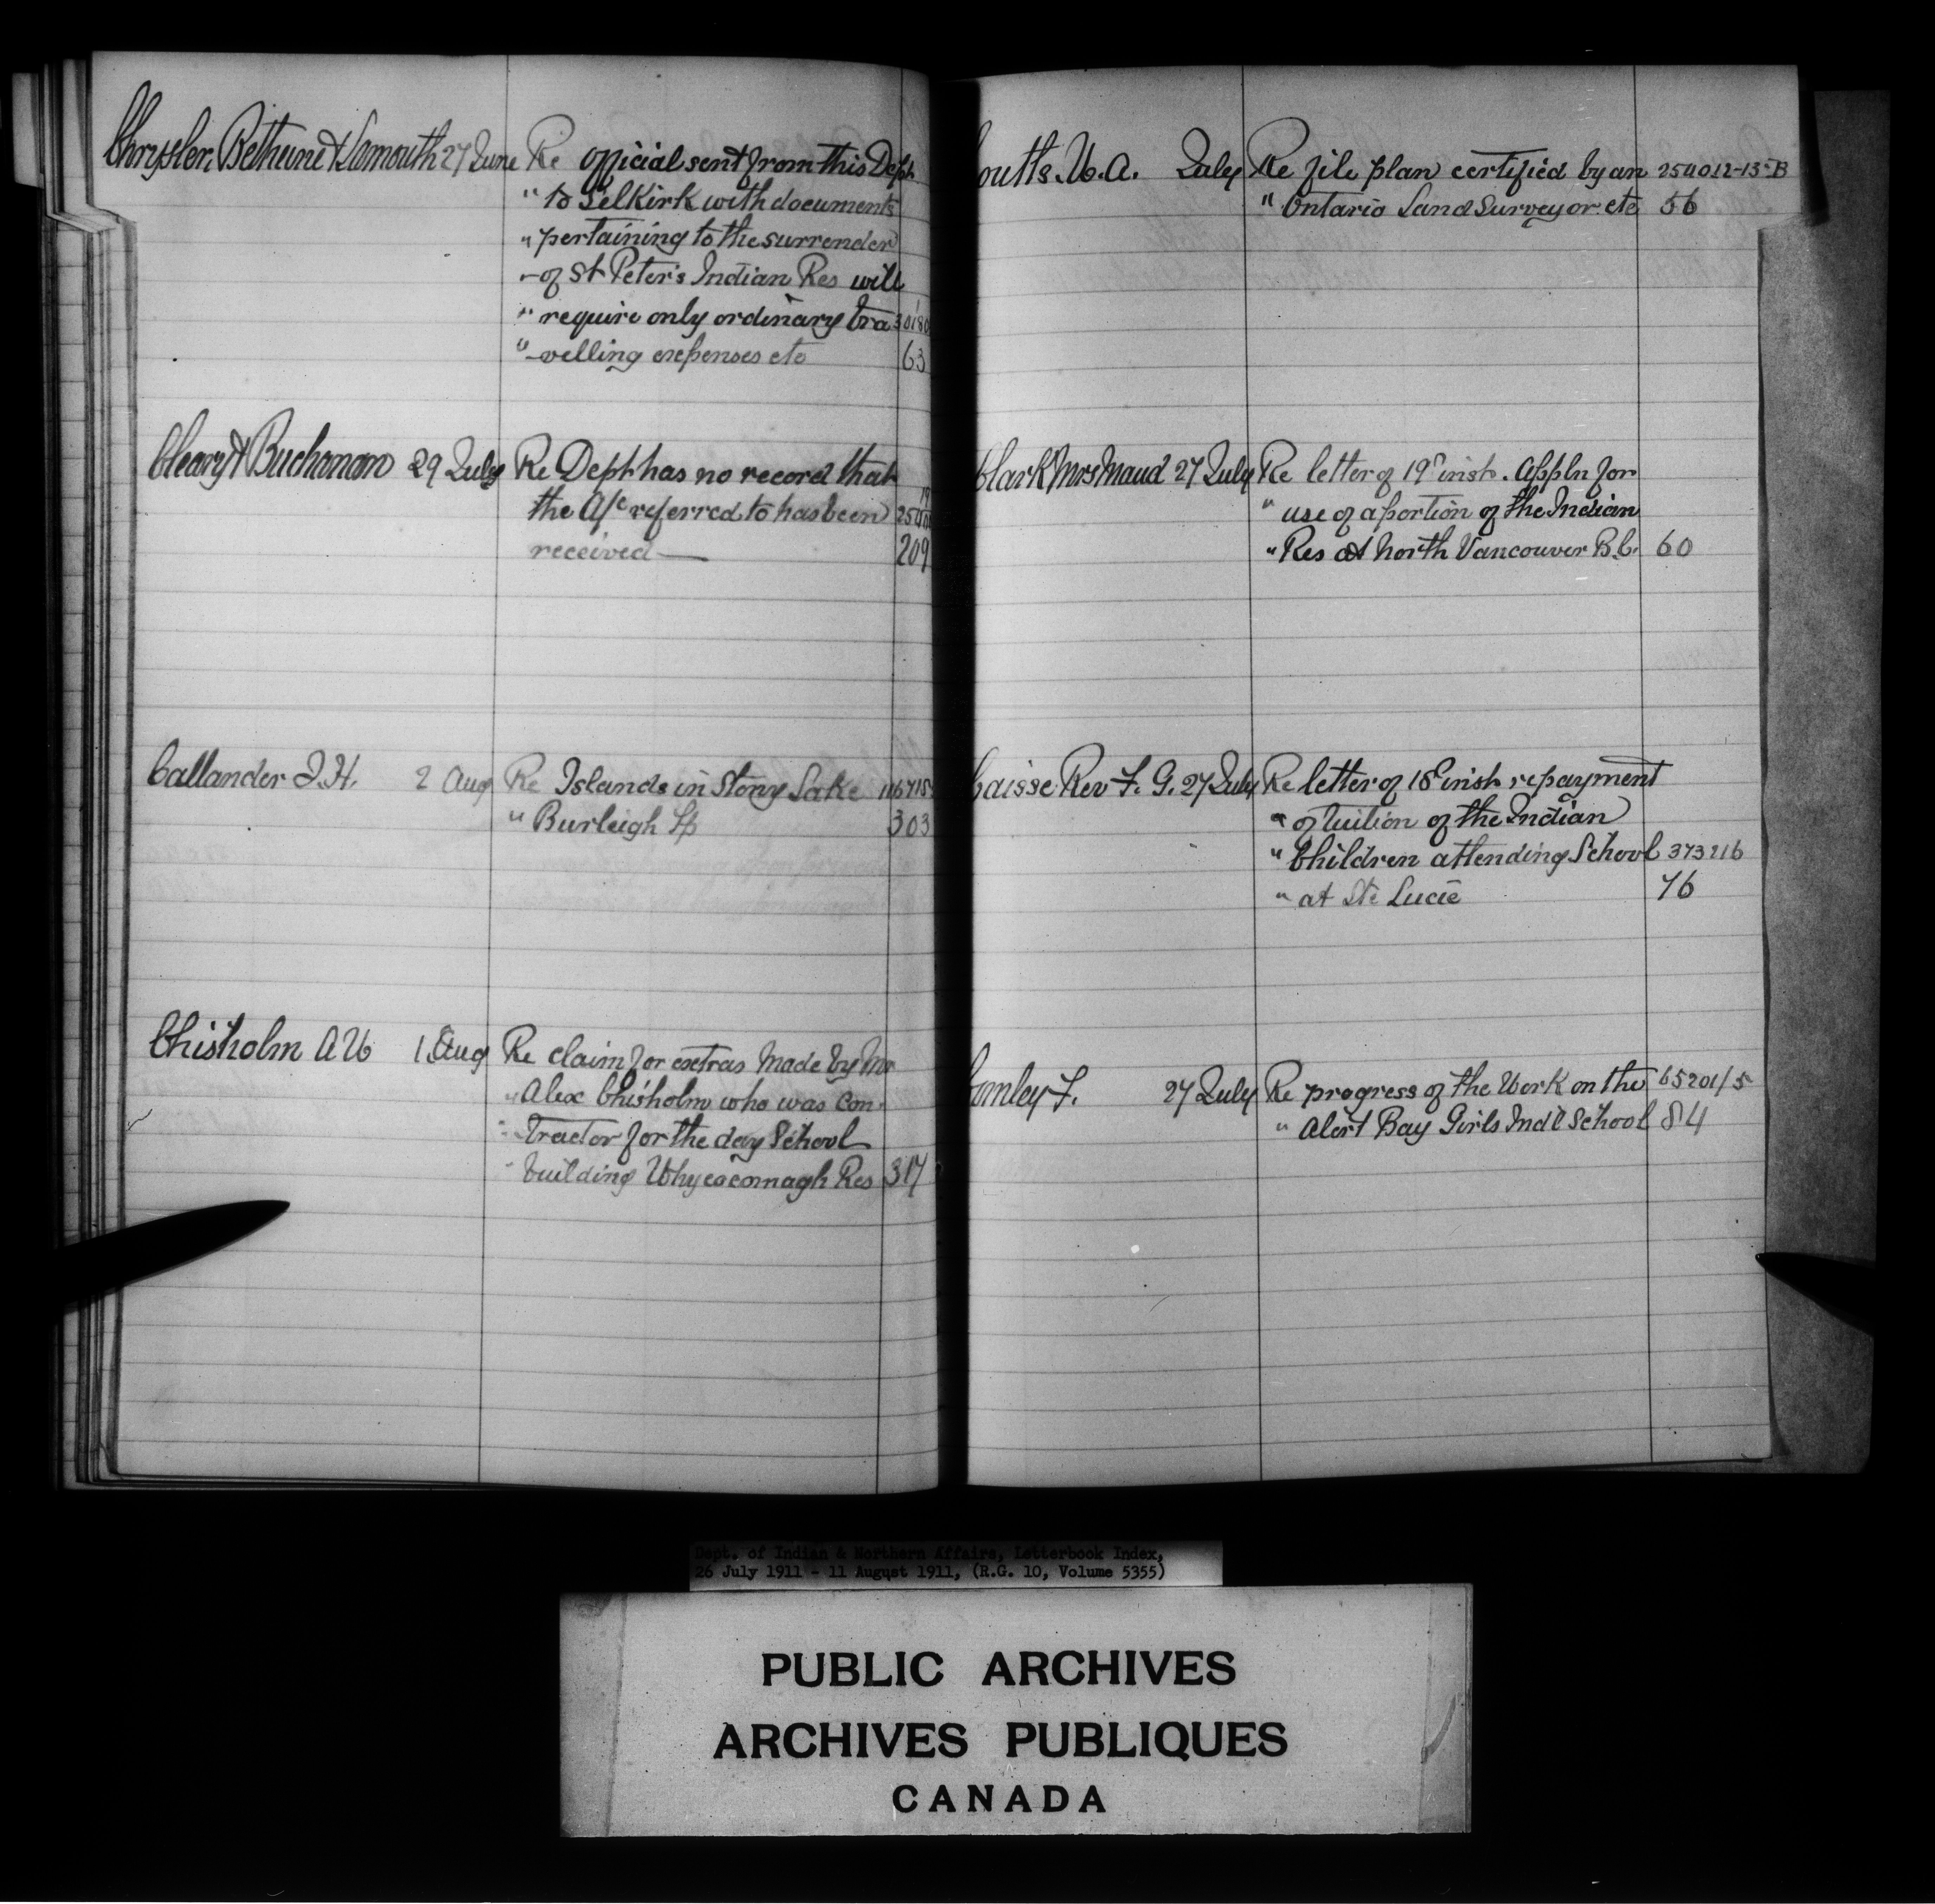 Chrysler, Bethune & Larmouth 27 June Re official sent from this Dept
" to Selkirk with documents
" pertaining to the surrender
" of St Peter's Indian Res will
" require only ordinary tra 30180
" -velling expenses etc 63
Cleary & Buchanan 29 July Re Dept has no record that
the A/c referred to has been
received — 209
Callander J.H. 2 Aug Re Islands in Stony Lake
" Burleigh Tp 303
Chisholm A W 1 Aug Re claim for extras made by Mr
" Alex Chisholm who was con-
" tractor for the day School
" building Whycocomagh Res 317
Coutts. W. A. July Re file plan certified by an 254012-13-B
" Ontario Land Surveyor etc 56
Clark Mrs Maud 27 July Re letter of 19th inst. Appln for
" use of a portion of the Indian
" Res at North Vancouver B.C. 60
Caisse Rev F. G. 27 July Re letter of 18th inst repayment
" of tuition of the Indian
" Children attending School 373216
" at Ste Lucie 76
Comley F. 27 July Re progress of the Work on the 65201/5
" Alert Bay Girls Indl School 84
Dept. of Indian & Northern Affairs, Letterbook Index,
26 July 1911 - 11 August 1911, (R.G. 10, Volume 5355)
PUBLIC ARCHIVES
ARCHIVES PUBLIQUES
CANADA